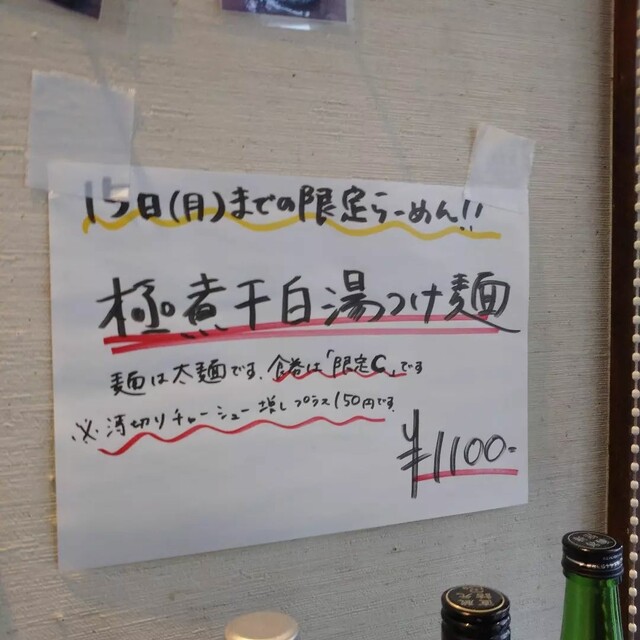 15日(月)までの限定らーめん!!
極煮干白湯つけ麺
麺は太麺です.食券は「限定C」です
※薄切りチャーシュー増しプラス150円です.
¥1100-